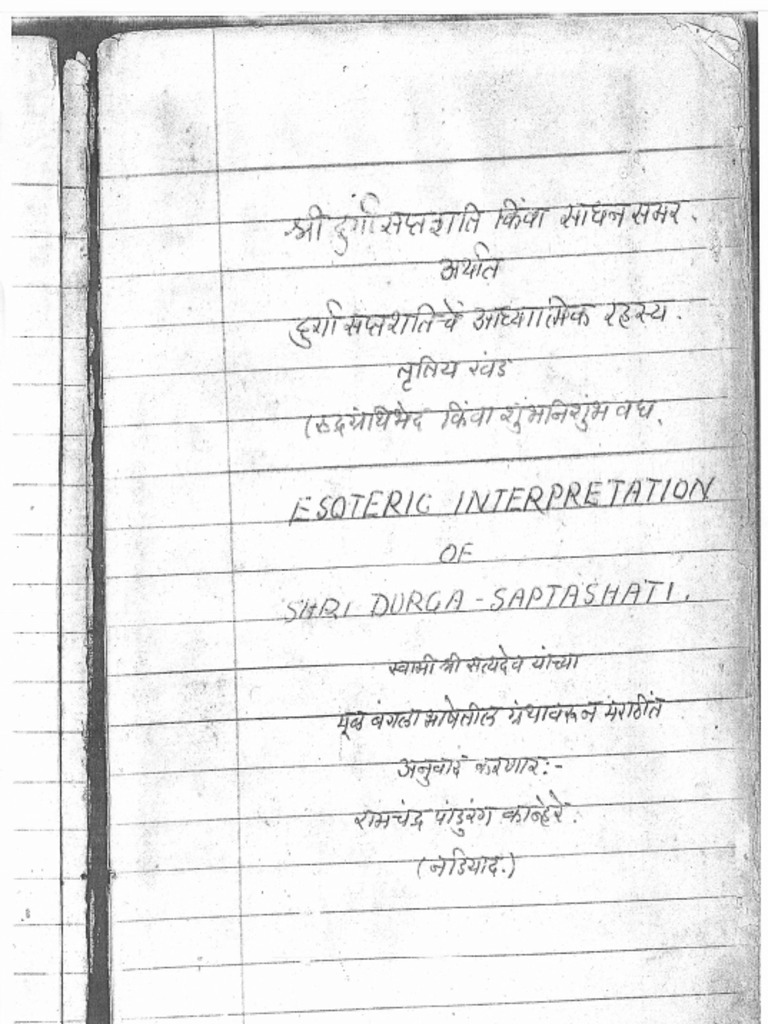 श्री दुर्गा सप्तशति किंवा साधन समर.
अर्थात
दुर्गा सप्तशतिचें आध्यात्मिक रहस्य.
तृतिय खंड
(रुद्रग्रंथिभेद किंवा शुंभनिशुंभ वध.
ESOTERIC INTERPRETATION
OF
SHRI DURGA-SAPTASHATI.
स्वामी श्री सत्यदेव यांच्या
मूळ बंगला भाषेतील ग्रंथावरून मराठींत
अनुवाद करणार:-
रामचंद्र पांडुरंग कान्हेरे.
(नडियाद.)